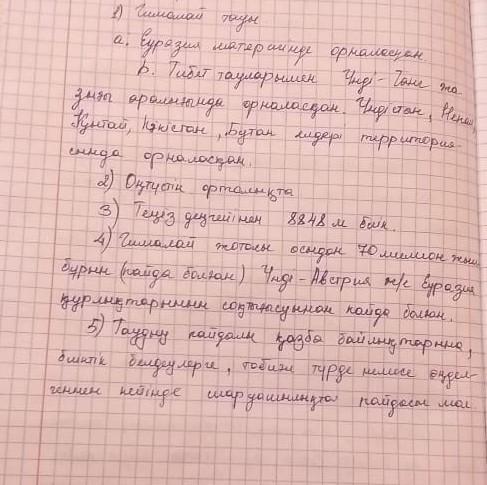 1) Гималай тауы
а. Еуразия материгінде орналасқан.
b. Тибет тауларымен Үнді-Ганг жа-
зығы аралығында орналасқан. Үндістан, Непал,
Қытай, Пәкістан, Бутан елдері территория-
сында орналасқан.
2) Оңтүстік орталықта
3) Теңіз деңгейінен 8848 м биік.
4) Гималай жотасы осыдан 70 миллион жыл
бұрын (пайда болған) Үнді-Австрия ж/е Еуразия
құрлықтарының соқтығысуннан пайда болған.
5) Таудың пайдалы қазба байлықтарына,
биіктік белдеулерге, табиғи түрде немесе өңдел-
геннен кейінде шаруашылықта пайдасы мол